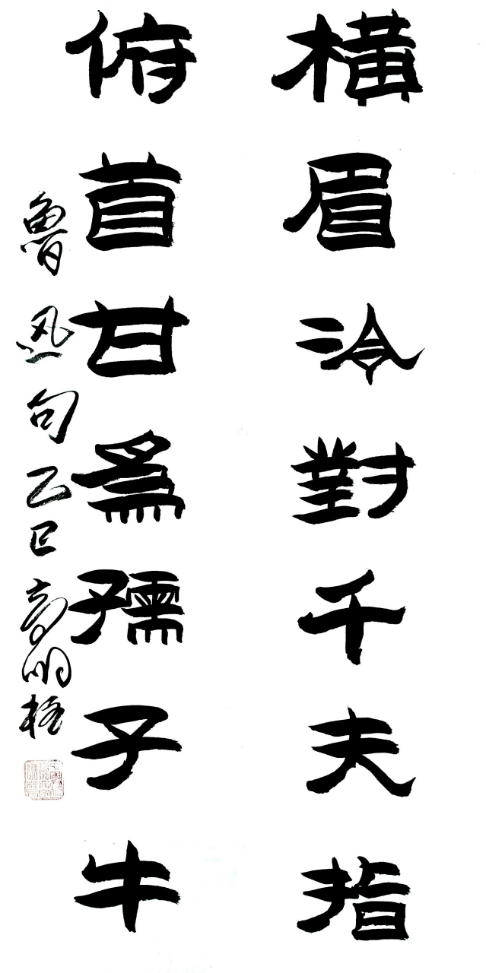 橫眉冷對千夫指
俯首甘爲孺子牛
魯迅句乙巳高明